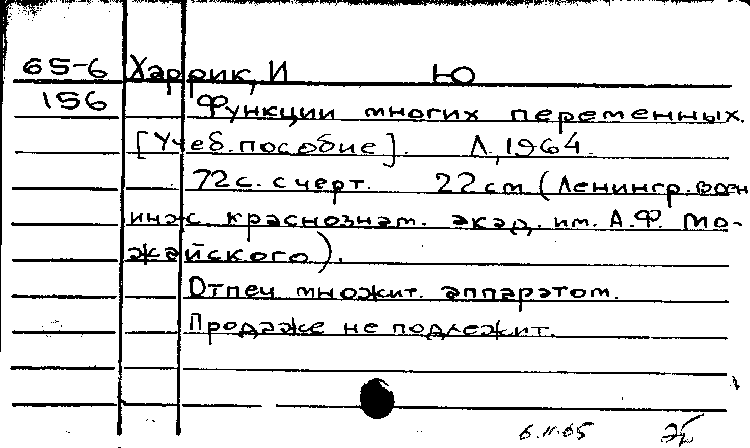 65-6 Харрик, И Ю
156 Функции многих переменных.
[Учеб. пособие]. Л, 1964.
72с. с черт. 22 см (Ленингр. воен
инж. краснознам. акад. им. А.Ф. Мо-
жайского).
Отпеч множит. аппаратом.
Продаже не подлежит.
6.11.65